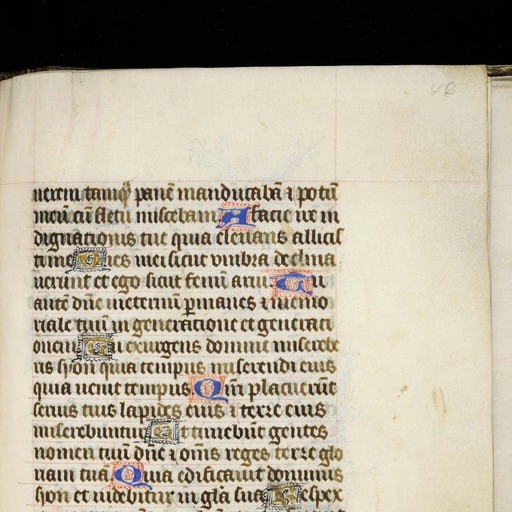 46
nerem tamq̃ panē manducabā ⁊ potū
meū cū fletu miscebam A facie ire in
dignationis tue quia eleuans allisis
ti me Dies mei sicut vmbra declina
uerunt et ego sicut fenū arui Tu
autē dñe ineternū ꝑmanes ⁊ memo
riale tuū in generatione et generati
onem Tu exurgens domine misereb
ris syon quia tempus miserendi eius
quia uenit tempus Qm̄ placuerūt
seruis tuis lapides eius ⁊ terre eius
miserebuntur Et timebūt gentes
nomen tuū dñe ⁊ om̄s reges terre glo
riam tuā Quia edificauit dominus
syon et uidebitur in gl̄a sua Respex